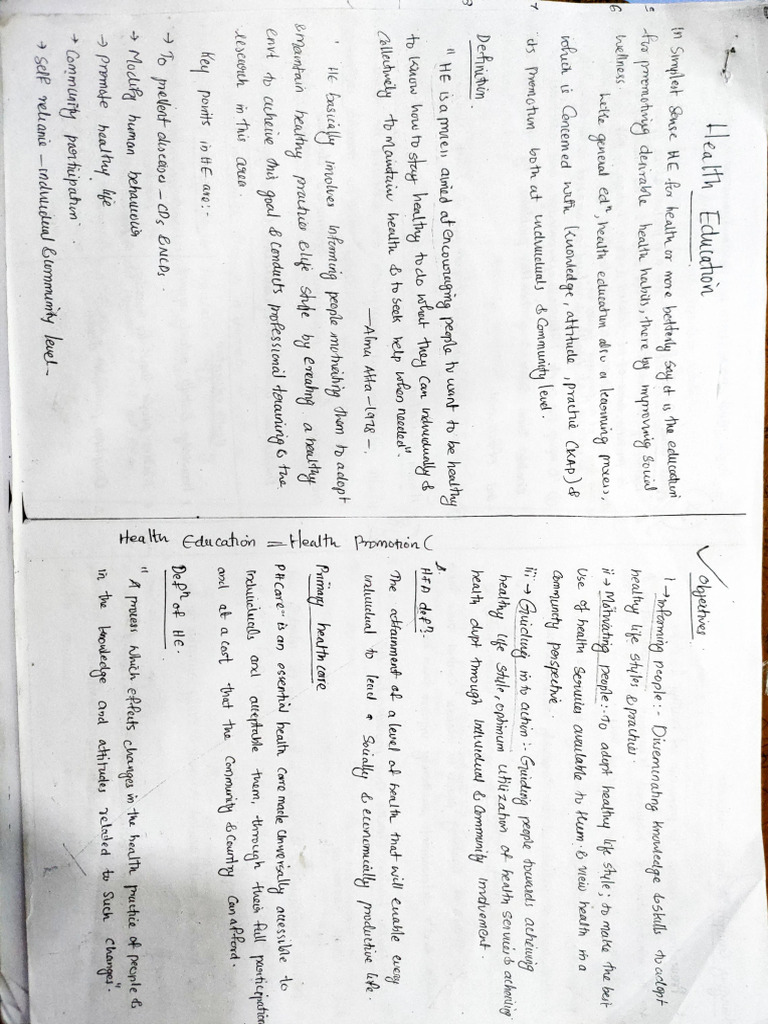 Health Education
In Simplest sense HE for health or more betterly say it is the education
for promoting desirable health habits, there by improving social
wellness.
Like general edn, health education also a learning process,
which is concerned with knowledge, attitude, practice (KAP) &
its promotion both at individuals & community level.
Definition.
"HE is a process aimed at encouraging people to want to be healthy
to know how to stay healthy to do what they can individually &
collectively to maintain health & to seek help when needed".
— Alma Atta - 1978 -.
" HE basically involves informing people motivating them to adopt
& maintain healthy practices & life style by creating a healthy
envt to acheive this goal & conducts professional training & the
research in this area.
Key points in HE are:-
→ To prevent diseases - CDs & NCDs.
→ Modify human behaviour
→ Promote healthy life
→ Community participation.
→ self reliance - individual & community level -
Objectives.
i → informing people:- Disseminating knowledge & skills to adopt
healthy life styles & practice.
ii → Motivating people:- To adopt healthy life style; to make the best
Use of health services available to them & view health in a
community perspective.
iii → Guiding in to action:- Guiding people towards acheiving
healthy life style, optimum utilization of health services & acheiving
health dvpt through Individual & community Involvement.
HFA defn:-
The attainment of a level of health that will enable every
individual to lead a socially & economically productive life.
Primary health care
PHCare is an essential health care made Universally accessible to
Individuals and acceptable them, through their full participation
and at a cost that the community & country can afford.
Defn of HE.
" A process which effects changes in the health practice of people &
in the knowledge and attitudes related to such changes".
Health Education = Health Promotion (